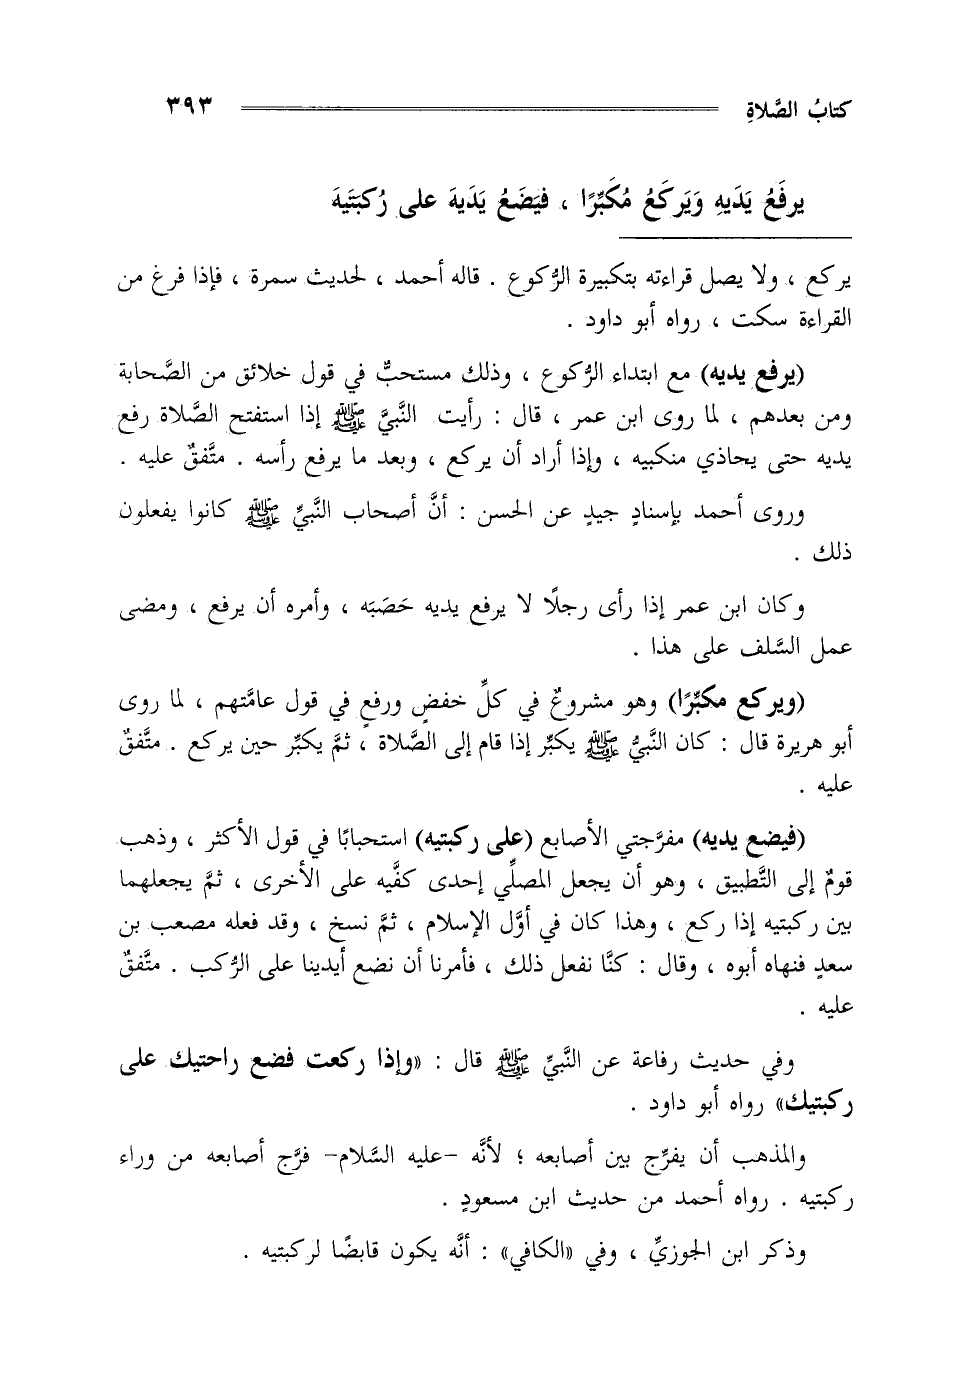 كتابُ الصَّلاةِ ٣٩٣
يرفَعُ يَدَيهِ وَيَركَعُ مُكَبِّرًا ، فيَضَعُ يَدَيهَ على رُكبَتَيهَ
يركع ، ولا يصل قراءته بتكبيرة الرُّكوع . قاله أحمد ، لحديث سمرة ، فإذا فرغ من
القراءة سكت ، رواه أبو داود .
(يرفع يديه) مع ابتداء الرُّكوع ، وذلك مستحبٌّ في قول خلائق من الصَّحابة
ومن بعدهم ، لما روى ابن عمر ، قال : رأيت النَّبيَّ ﷺ إذا استفتح الصَّلاة رفع
يديه حتى يحاذي منكبيه ، وإذا أراد أن يركع ، وبعد ما يرفع رأسه . متَّفقٌ عليه .
وروى أحمد بإسنادٍ جيدٍ عن الحسن : أنَّ أصحاب النَّبيِّ ﷺ كانوا يفعلون
ذلك .
وكان ابن عمر إذا رأى رجلًا لا يرفع يديه حَصَبَه ، وأمره أن يرفع ، ومضى
عمل السَّلف على هذا .
(ويركع مكبِّرًا) وهو مشروعٌ في كلِّ خفضٍ ورفعٍ في قول عامَّتهم ، لما روى
أبو هريرة قال : كان النَّبيُّ ﷺ يكبِّر إذا قام إلى الصَّلاة ، ثمَّ يكبِّر حين يركع . متَّفقٌ
عليه .
(فيضع يديه) مفرَّجتي الأصابع (على ركبتيه) استحبابًا في قول الأكثر ، وذهب
قومٌ إلى التَّطبيق ، وهو أن يجعل المصلِّي إحدى كفَّيه على الأخرى ، ثمَّ يجعلهما
بين ركبتيه إذا ركع ، وهذا كان في أوَّل الإسلام ، ثمَّ نسخ ، وقد فعله مصعب بن
سعدٍ فنهاه أبوه ، وقال : كنَّا نفعل ذلك ، فأمرنا أن نضع أيدينا على الرُّكب . متَّفقٌ
عليه .
وفي حديث رفاعة عن النَّبيِّ ﷺ قال : «وإذا ركعت فضع راحتيك على
ركبتيك» رواه أبو داود .
والمذهب أن يفرِّج بين أصابعه ؛ لأنَّه -عليه السَّلام- فرَّج أصابعه من وراء
ركبتيه . رواه أحمد من حديث ابن مسعودٍ .
وذكر ابن الجوزيِّ ، وفي «الكافي» : أنَّه يكون قابضًا لركبتيه .